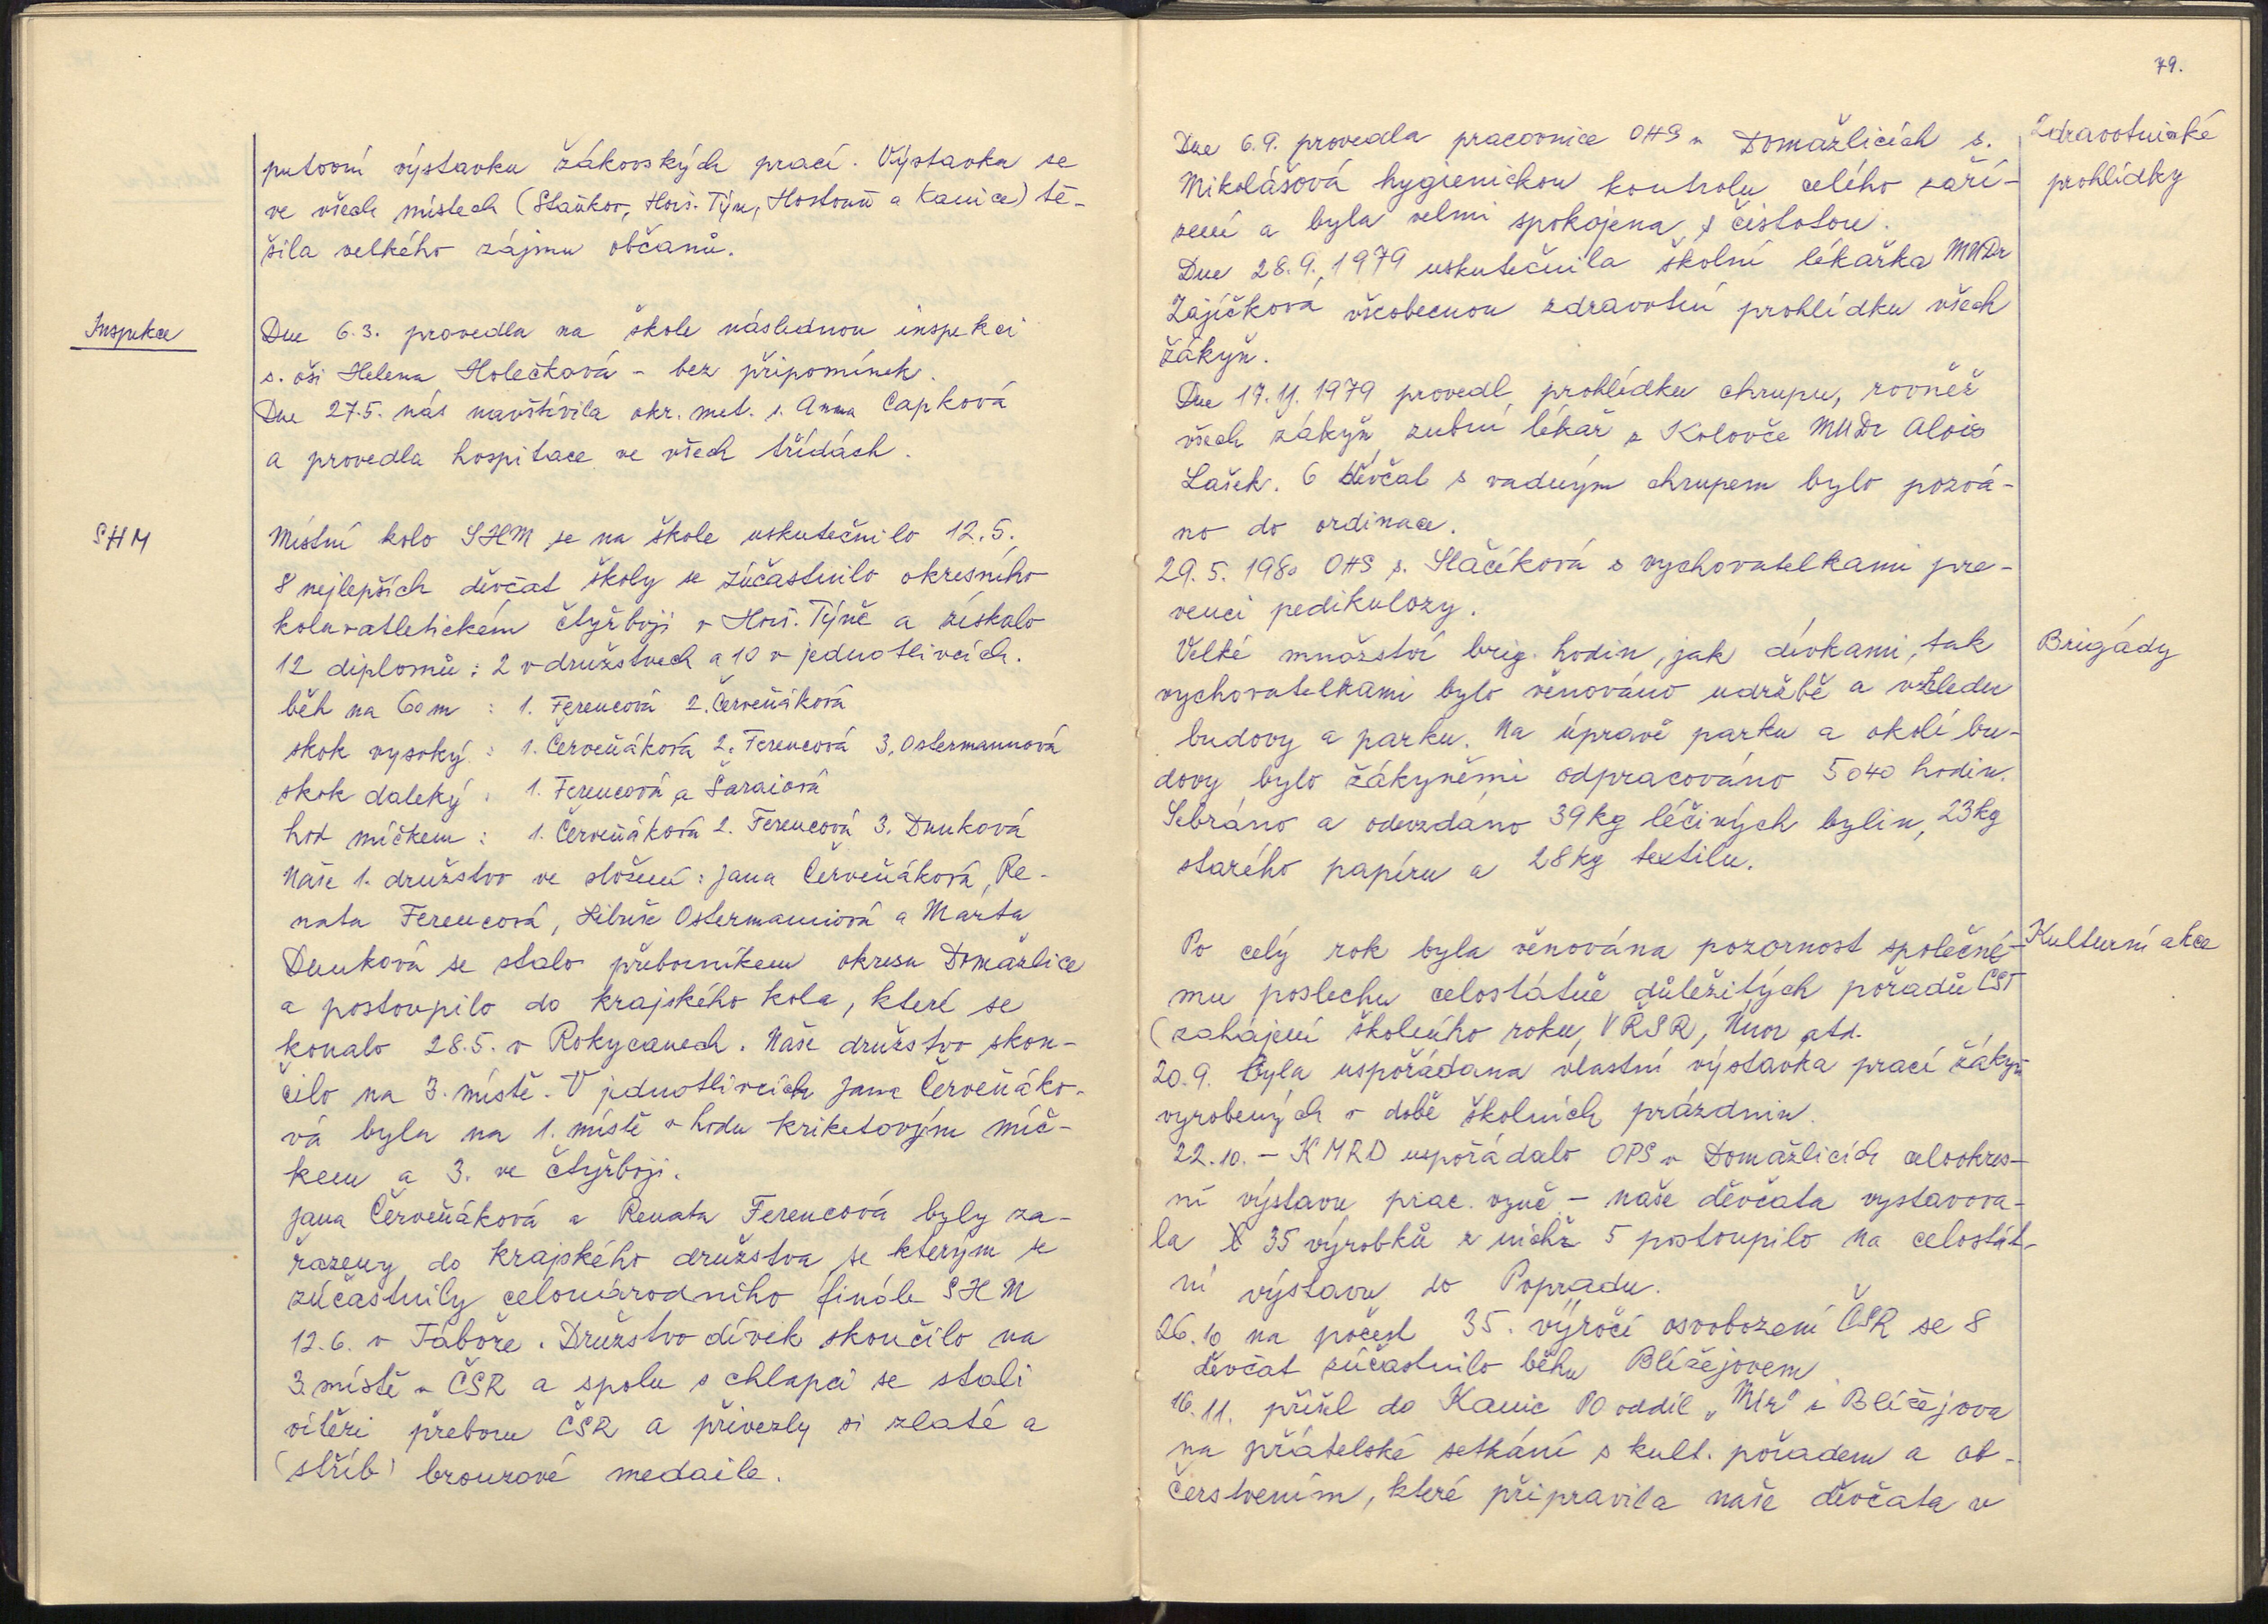 putovní výstavku žákovských prací. Výstavka se
ve všech místech (Staňkov, Horš. Týn, Hostouň a Kanice) tě-
šila velkého zájmu občanů.
Inspekce
Dne 6.3. provedla na škole následnou inspekci
s. oši Helena Holečková - bez připomínek.
Dne 27.5. nás navštívila okr. met. s. Anna Čapková
a provedla hospitace ve všech třídách.
SHM
Místní kolo SHM se na škole uskutečnilo 12.5.
8 nejlepších děvčat školy se zúčastnilo okresního
kola v atletickém čtyřboji v Horš. Týně a získalo
12 diplomů: 2 v družstvech a 10 v jednotlivcích.
běh na 60 m : 1. Ferencová 2. Červeňáková
skok vysoký : 1. Červeňáková 2. Ferencová 3. Ostermannová
skok daleký : 1. Ferencová a Šaraiová
hod míčkem : 1. Červeňáková 2. Ferencová 3. Dunková
Naše 1. družstvo ve složení: Jana Červeňáková, Re-
nata Ferencová, Libuše Ostermannová a Marta
Dunková se stalo přeborníkem okresu Domažlice
a postoupilo do krajského kola, které se
konalo 28.5. v Rokycanech. Naše družstvo skon-
čilo na 3. místě. V jednotlivcích Jana Červeňáko-
vá byla na 1. místě v hodu kriketovým míč-
kem a 3. ve čtyřboji.
Jana Červeňáková a Renata Ferencová byly za-
řazeny do krajského družstva se kterým se
zúčastnily celonárodního finále SHM
12.6. v Táboře. Družstvo dívek skončilo na
3. místě v ČSR a spolu s chlapci se stali
vítězi přeboru ČSR a přivezly si zlaté a
(stříb) bronzové medaile.
79.
Zdravotnické
prohlídky
Dne 6.9. provedla pracovnice OHS v Domažlicích s.
Mikolášová hygienickou kontrolu celého zaří-
zení a byla velmi spokojena s čistotou.
Dne 28.9. 1979 uskutečnila školní lékařka MUDr
Zajíčková všeobecnou zdravotní prohlídku všech
žákyň.
Dne 17.11. 1979 provedl prohlídku chrupu, rovněž
všech žákyň zubní lékař z Kolovče MUDr Alois
Lašek. 6 děvčat s vadným chrupem bylo pozvá-
no do ordinace.
29.5. 1980 OHS s. Slačíková s vychovatelkami pre-
venci pedikulozy.
Brigády
Velké množství brig. hodin, jak dívkami, tak
vychovatelkami bylo věnováno udržbě a vzhledu
budovy a parku. Na úpravě parku a okolí bu-
dovy bylo žákyněmi odpracováno 5040 hodin.
Sebráno a odevzdáno 39 kg léčivých bylin, 23 kg
starého papíru a 28 kg textilu.
Kulturní akce
Po celý rok byla věnována pozornost společné-
mu poslechu celostátně důležitých pořadů ČST
(zahájení školního roku, VŘSR, Únor atd.
20.9. byla uspořádana vlastní výstavka prací žákyň
vyrobených v době školních prázdnin.
22.10. - K MRD uspořádalo OPS v Domažlicích celookres-
ní výstavu prac. vyuč - naše děvčata vystavova-
la 35 výrobků z nichž 5 postoupilo na celostát-
ní výstavu do Popradu.
26.10 na počest 35. výročí osvobození ČSR se 8
děvčat zúčastnilo běhu Blížejovem
16.11. přišel do Kanic PO oddíl „Mír" z Blížejova
na přátelské setkání s kult. pořadem a ob-
čerstvením, které připravila naše děvčata v